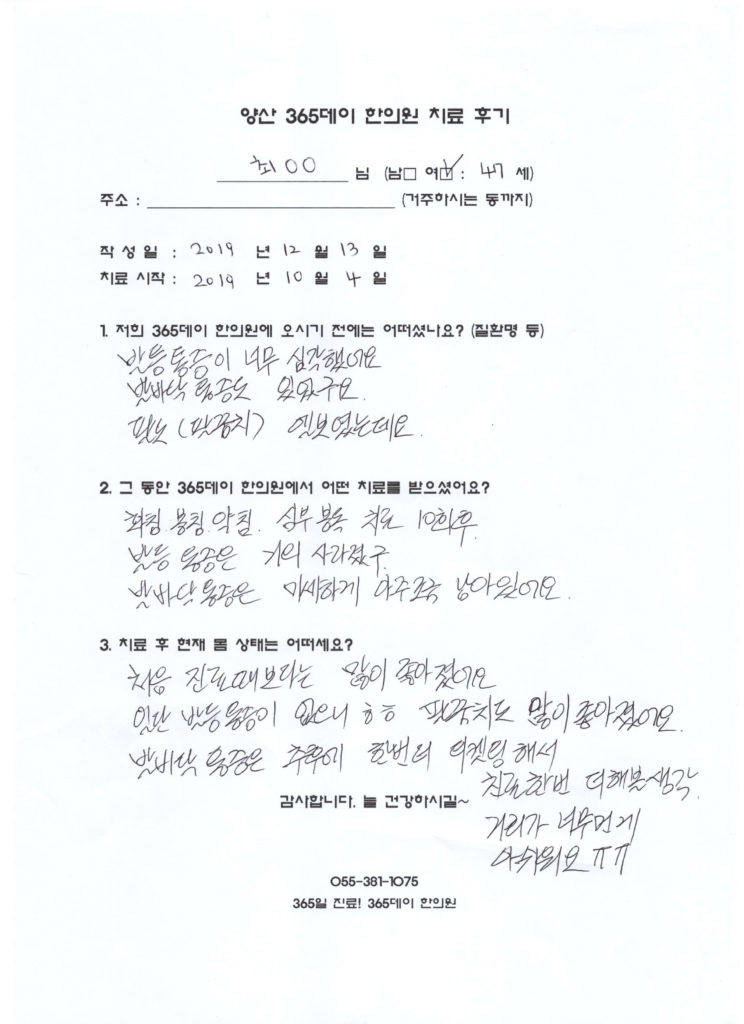 양산 365데이 한의원 치료 후기
최OO 님 (남□ 여☑: 47 세)
주소 : (거주하시는 동까지)
작 성 일 : 2019 년 12 월 13 일
치료 시작 : 2019 년 10 월 4 일
1. 저희 365데이 한의원에 오시기 전에는 어떠셨나요? (질환명 등)
발등통증이 너무 심각했어요
발바닥 통증도 있었구요.
팔도 (팔꿈치) 엘보였는데요.
2. 그 동안 365데이 한의원에서 어떤 치료를 받으셨어요?
봉침.약침. 심부 치료 10회후.
발등 통증은 거의 사라졌구.
발바닥통증은 미세하게 아주조금 남아있어요.
3. 치료 후 현재 몸 상태는 어떠세요?
처음 진료때보다는 많이 좋아졌어요
일단 발등통증이 없으니 ㅎㅎ 팔꿈치도 많이 좋아졌어요.
발바닥 통증은 추후에 한번더 티켓팅해서
치료한번 더해볼생각.
감사합니다. 늘 건강하시길~
거리가 너무먼게
아쉬워요 ㅠㅠ
055-381-1075
365일 진료! 365데이 한의원